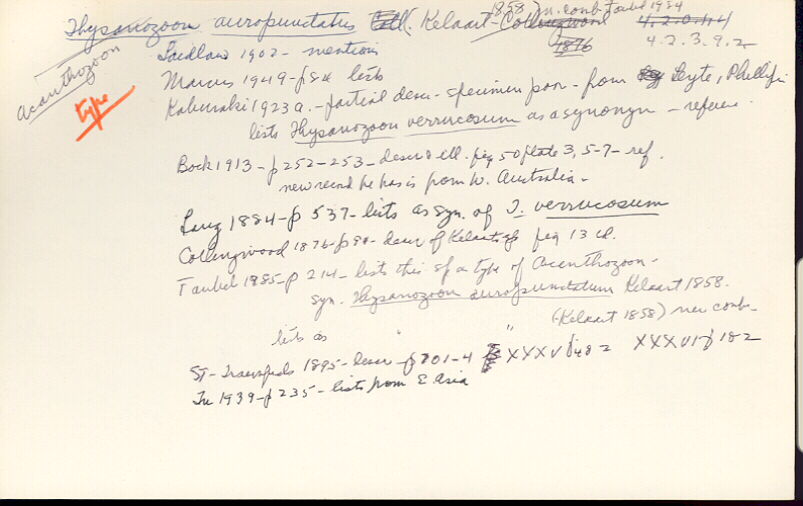 Thysanozoon auropunctatus Coll. Kelaart 1858, n. comb. Faubel 1984
Collingwood 1876 4.2.0.4.4
4.2.3.9.2
Acanthozoon
type
Laidlaw 1902 - mentions
Marcus 1949 - p 84 lists
Kaburaki 1923a. - partial descr - specimen poor - from Leyte, Phillipi
lists Thysanozoon verrucosum as a synonym - referen
Bock 1913 - p 252-253 - descr & ill. fig 50 plate 3, 5-7 - ref.
new record he has is from W. Australia -
Lang 1884 - p 537 - lists as syn. of T. verrucosum
Collingwood 1876 - p 90 - descr of Kelaarts sp fig 13 col.
Faubel 1985 - p 214 - lists this sp a type of Acanthozoon -
syn. Thysanozoon auropunctatum Kelaart 1858.
lists as " " (Kelaart 1858) new comb -
St-Transfeds 1895 - descr - p 201-4 XXXV p 482 XXXVI p 182
Tu 1939 - p 235 - lists from E Asia